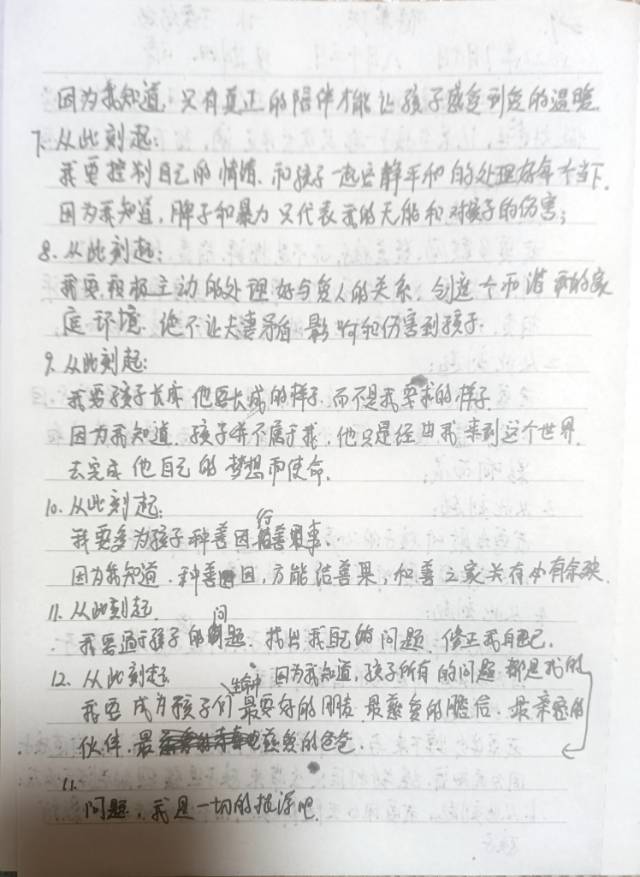 因为我知道,只有真正的陪伴才能让孩子感受到爱的温暖.
7. 从此刻起:
我要控制自己的情绪.和孩子一起安静平和的处理好每个当下.
因为我知道,脾子和暴力只代表我的无能和对孩子的伤害;
8. 从此刻起:
我要积极主动的处理好与爱人的关系,创造个和谐的家
庭环境.绝不让夫妻矛盾影响和伤害到孩子.
9. 从此刻起:
我要孩子长成他要长成的样子.而不是我要求的样子.
因为我知道.孩子并不属于我,他只是经由我来到这个世界.
去完成他自己的梦想和使命.
10. 从此刻起:
我要多为孩子种善因行善事.
因为我知道.种善因,方能结善果,积善之家必有余
11. 从此刻起.
我要通过孩子的问题.找出我自己的问题.修正我自己.
12. 从此刻起. 因为我知道,孩子所有的问题都是我的
我要成为孩子们生命中最要好的朋友.最慈爱的.最亲密的
伙伴.最慈爱的爸爸.
11
问题,我是一切的根源吧.